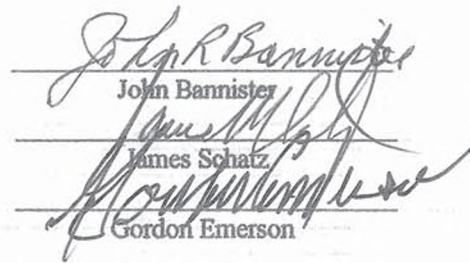 John R Bannister
John Bannister
James Schatz
Gordon Emerson